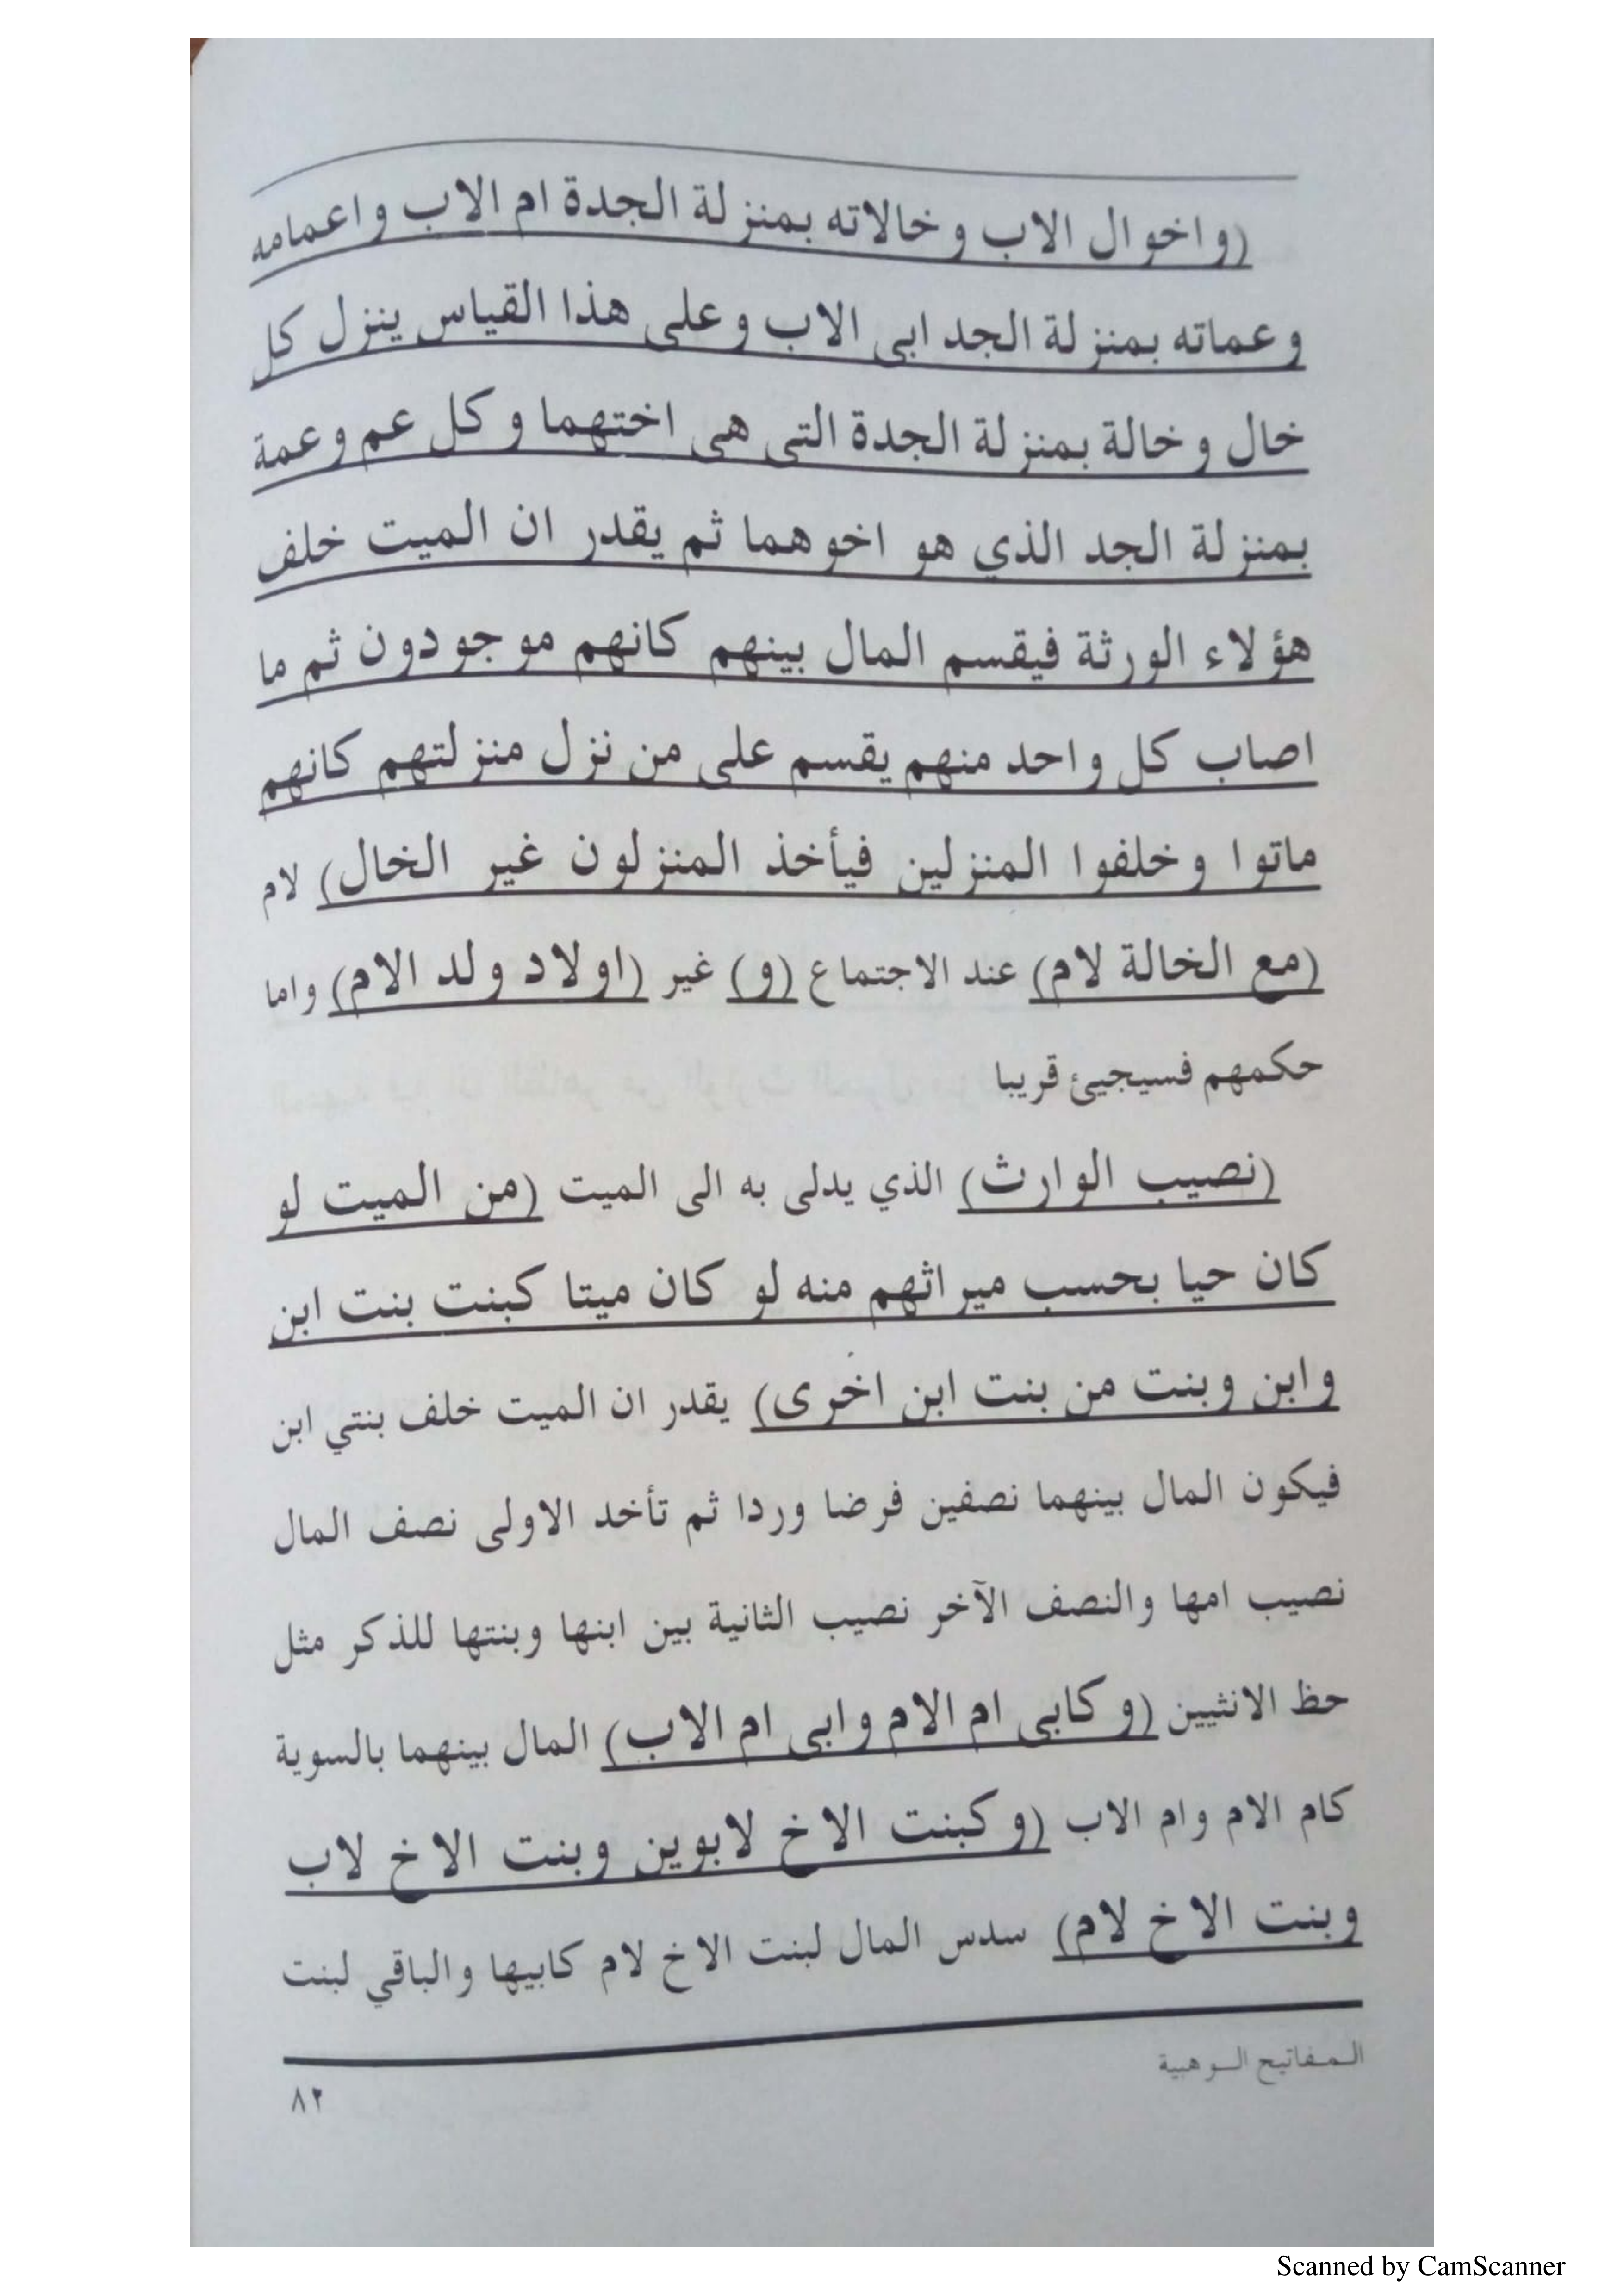 (واخوال الاب وخالاته بمنزلة الجدة ام الاب واعمامه
وعماته بمنزلة الجد ابى الاب وعلى هذا القياس ينزل كل
خال وخالة بمنزلة الجدة التى هى اختهما وكل عم وعمة
بمنزلة الجد الذي هو اخوهما ثم يقدر ان الميت خلف
هؤلاء الورثة فيقسم المال بينهم كانهم موجودون ثم ما
اصاب كل واحد منهم يقسم على من نزل منزلتهم كانهم
ماتوا وخلفوا المنزلين فيأخذ المنزلون غير الخال) لام
(مع الخالة لام) عند الاجتماع (و) غير (اولاد ولد الام) واما
حكمهم فسيجيئ قريبا
(نصيب الوارث) الذي يدلى به الى الميت (من الميت لو
كان حيا بحسب ميراثهم منه لو كان ميتا كبنت بنت ابن
وابن وبنت من بنت ابن اخرى) يقدر ان الميت خلف بنتي ابن
فيكون المال بينهما نصفين فرضا وردا ثم تأخد الاولى نصف المال
نصيب امها والنصف الآخر نصيب الثانية بين ابنها وبنتها للذكر مثل
حظ الانثيين (وكابى ام الام وابى ام الاب) المال بينهما بالسوية
كام الام وام الاب (وكبنت الاخ لابوين وبنت الاخ لاب
وبنت الاخ لام) سدس المال لبنت الاخ لام كابيها والباقي لبنت
المفاتيح الوهبية
٨٢
Scanned by CamScanner